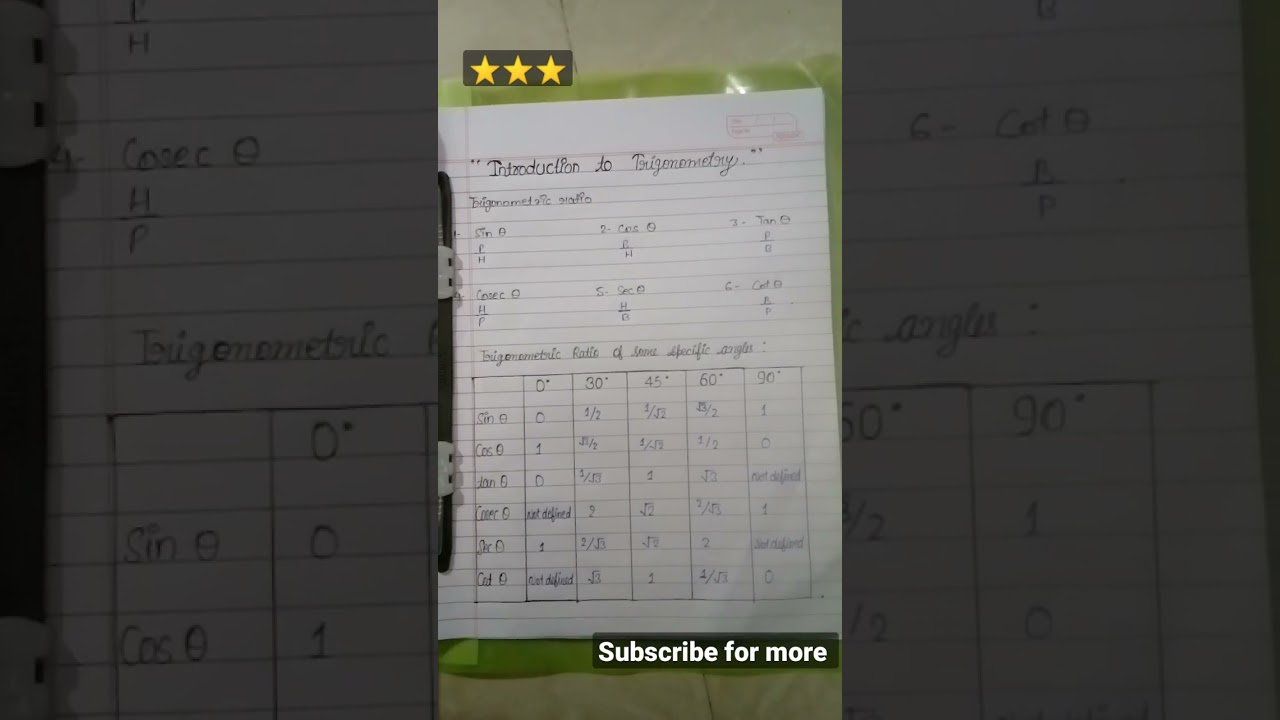 ⭐⭐⭐
"Introduction to Trigonometry."
Trigonometric ratio
1- Sin θ 2- Cos θ 3- Tan θ
P/H B/H P/B
4- Cosec θ 5- Sec θ 6- Cot θ
H/P H/B B/P
Trigonometric Ratio of some specific angles :
0° 30° 45° 60° 90°
Sin θ 0 1/2 1/√2 √3/2 1
Cos θ 1 √3/2 1/√2 1/2 0
tan θ 0 1/√3 1 √3 Not defined
Cosec θ Not defined 2 √2 2/√3 1
Sec θ 1 2/√3 √2 2 Not defined
Cot θ Not defined √3 1 1/√3 0
Subscribe for more